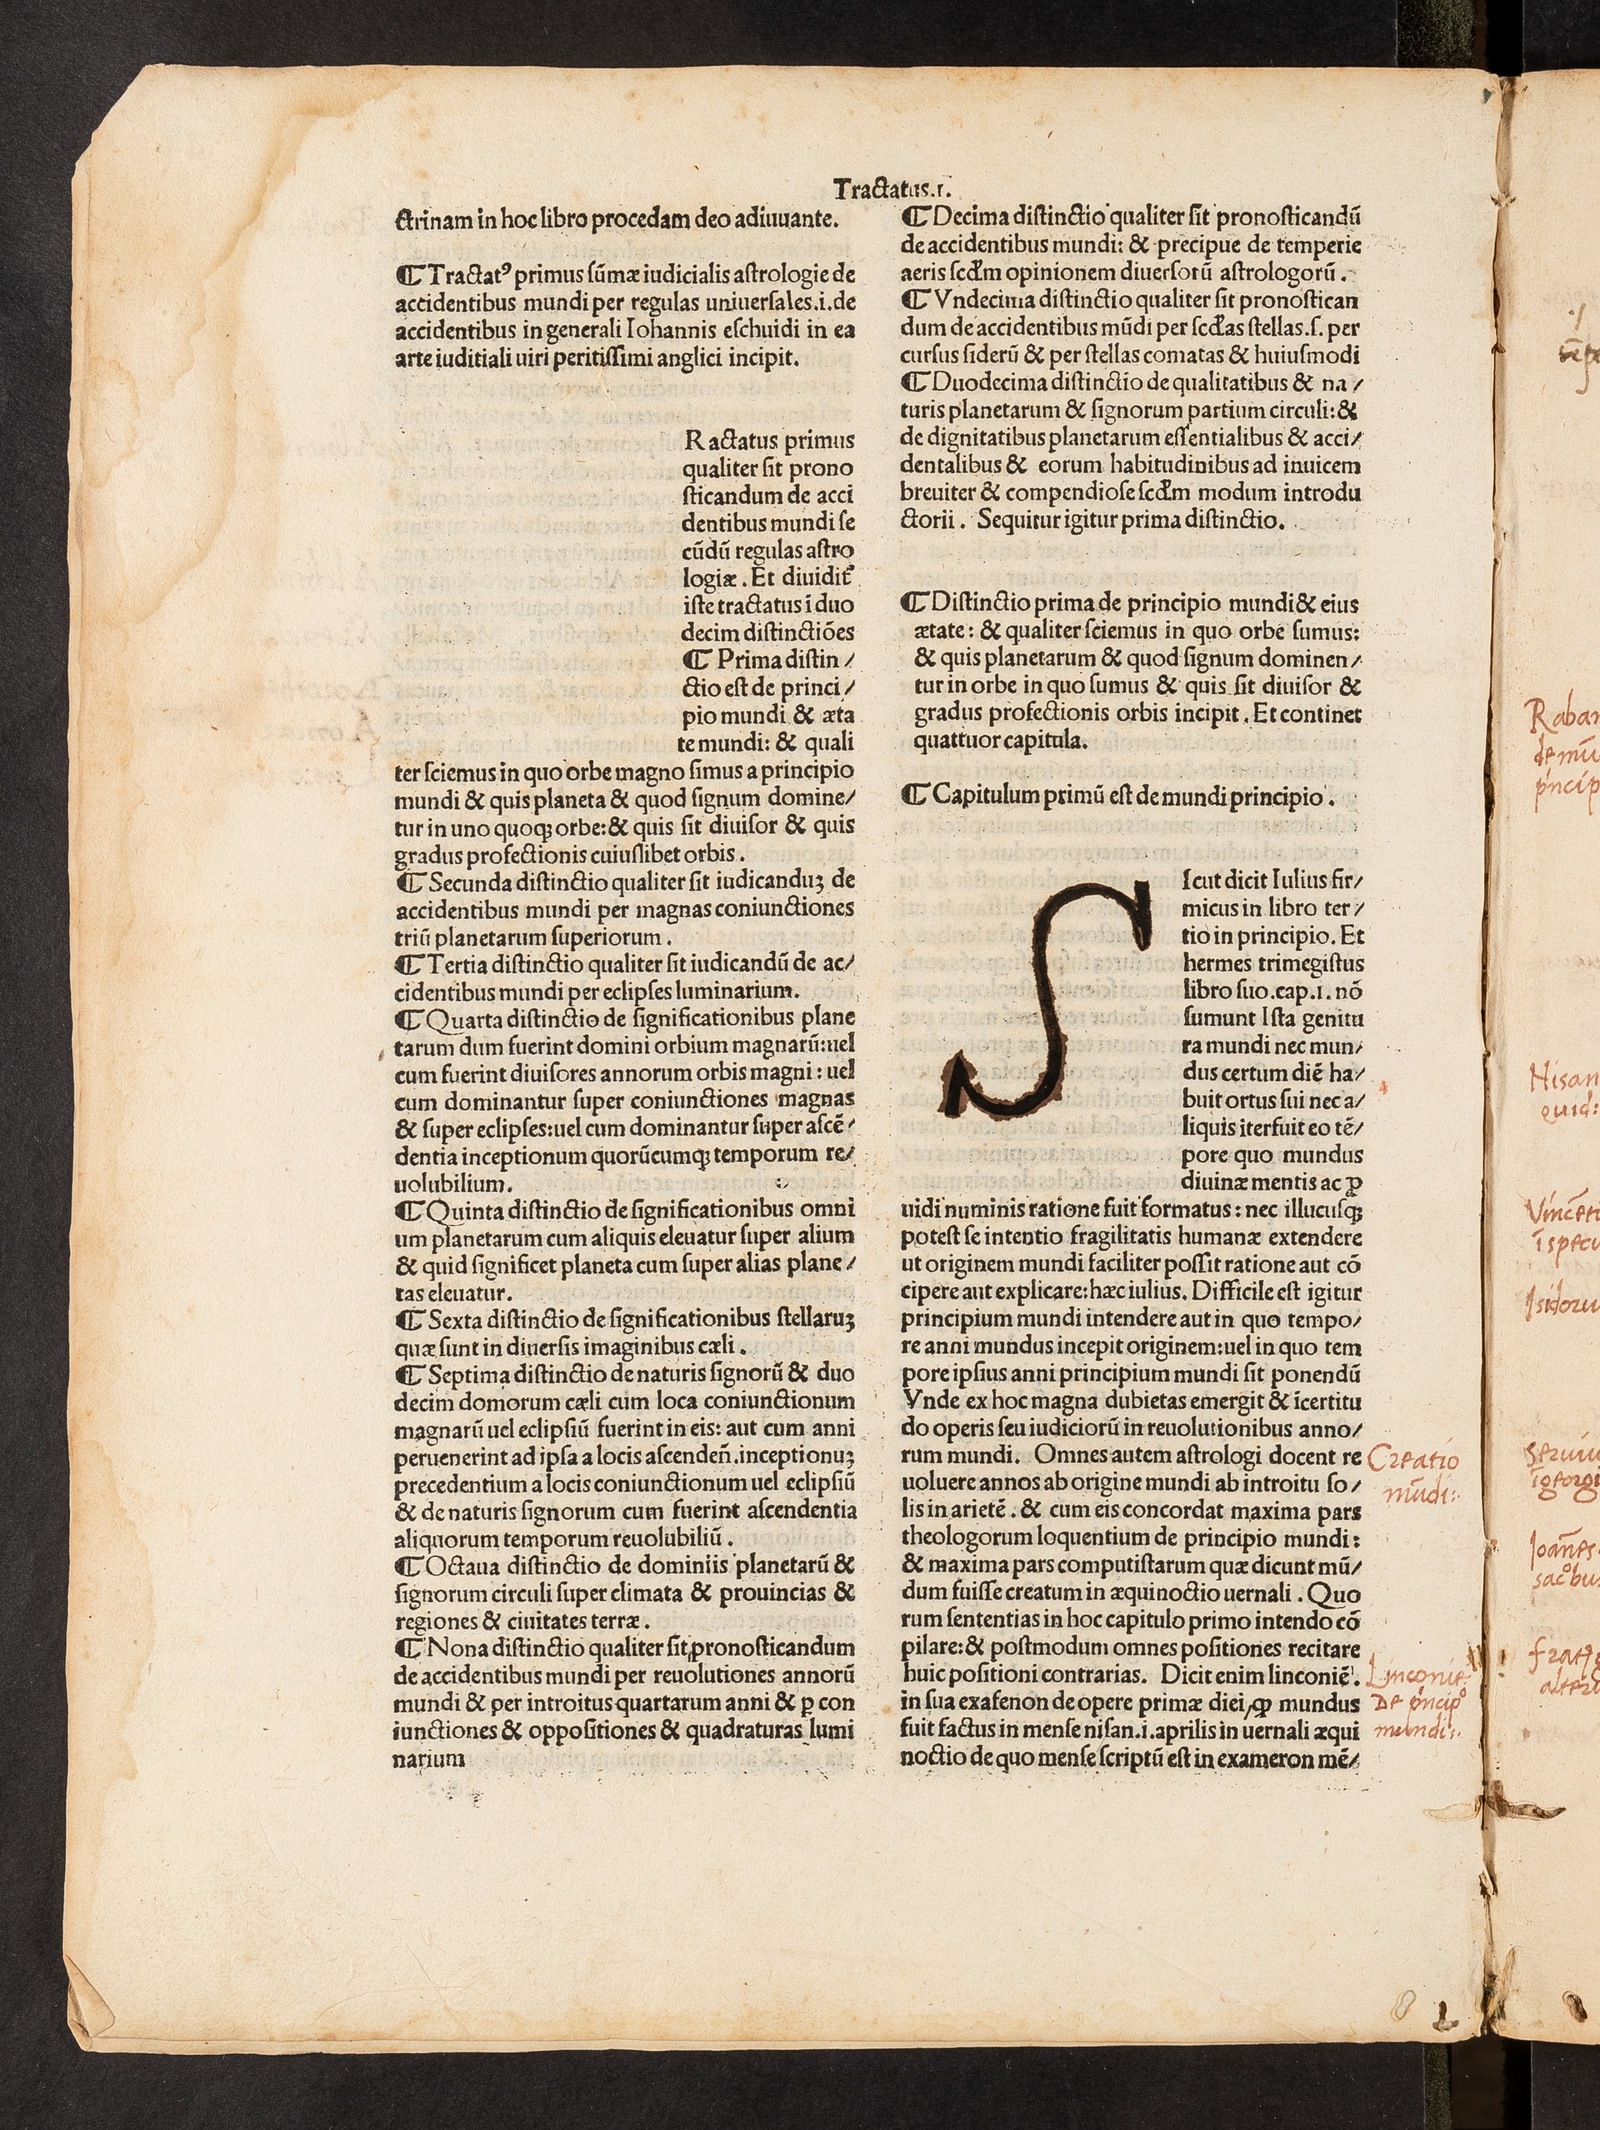 Tractatus.1.
ctrinam in hoc libro procedam deo adiuuante.
⸿ Tractatꝰ primus sūmæ iudicialis astrologie de
accidentibus mundi per regulas uniuersales.i.de
accidentibus in generali Iohannis eschuidi in ea
arte iuditiali uiri peritissimi anglici incipit.
Ractatus primus
qualiter sit prono
sticandum de acci
dentibus mundi se
cūdū regulas astro
logiæ. Et diuidit᷑
iste tractatus ī duo
decim distinctiōes
⸿ Prima distin/
ctio est de princi/
pio mundi & æta
te mundi: & quali
ter sciemus in quo orbe magno simus a principio
mundi & quis planeta & quod signum domine/
tur in uno quoqꝫ orbe:& quis sit diuisor & quis
gradus profectionis cuiuslibet orbis.
⸿ Secunda distinctio qualiter sit iudicanduꝫ de
accidentibus mundi per magnas coniunctiones
triū planetarum superiorum.
⸿ Tertia distinctio qualiter sit iudicandū de ac/
cidentibus mundi per eclipses luminarium.
⸿ Quarta distinctio de significationibus plane
tarum dum fuerint domini orbium magnarū:uel
cum fuerint diuisores annorum orbis magni: uel
cum dominantur super coniunctiones magnas
& super eclipses:uel cum dominantur super ascē/
dentia inceptionum quorūcumqꝫ temporum re/
uolubilium.
⸿ Quinta distinctio de significationibus omni
um planetarum cum aliquis eleuatur super alium
& quid significet planeta cum super alias plane/
tas eleuatur.
⸿ Sexta distinctio de significationibus stellaruꝫ
quæ sunt in diuersis imaginibus cæli.
⸿ Septima distinctio de naturis signorū & duo
decim domorum cæli cum loca coniunctionum
magnarū uel eclipsiū fuerint in eis: aut cum anni
peruenerint ad ipsa a locis ascendeñ.inceptionuꝫ
precedentium a locis coniunctionum uel eclipsiū
& de naturis signorum cum fuerint ascendentia
aliquorum temporum reuolubiliū.
⸿ Octaua distinctio de dominiis planetarū &
signorum circuli super climata & prouincias &
regiones & ciuitates terræ.
⸿ Nona distinctio qualiter sit pronosticandum
de accidentibus mundi per reuolutiones annorū
mundi & per introitus quartarum anni & ꝑ con
iunctiones & oppositiones & quadraturas lumi
narium
⸿ Decima distinctio qualiter sit pronosticandū
de accidentibus mundi: & precipue de temperie
aeris scďm opinionem diuersorū astrologorū.
⸿ Vndecima distinctio qualiter sit pronostican
dum de accidentibus mūdi per scďas stellas.s. per
cursus siderū & per stellas comatas & huiusmodi
⸿ Duodecima distinctio de qualitatibus & na/
turis planetarum & signorum partium circuli:&
de dignitatibus planetarum essentialibus & acci/
dentalibus & eorum habitudinibus ad inuicem
breuiter & compendiose scďm modum introdu
ctorii. Sequitur igitur prima distinctio.
⸿ Distinctio prima de principio mundi& eius
ætate: & qualiter sciemus in quo orbe sumus:
& quis planetarum & quod signum dominen/
tur in orbe in quo sumus & quis sit diuisor &
gradus profectionis orbis incipit. Et continet
quattuor capitula.
⸿ Capitulum primū est de mundi principio.
S Icut dicit Iulius fir/
micus in libro ter/
tio in principio. Et
hermes trimegistus
libro suo.cap.1. nō
sumunt Ista genitu
ra mundi nec mun/
dus certum diē ha/
buit ortus sui nec a/
liquis iterfuit eo tē/
pore quo mundus
diuinæ mentis ac ꝓ
uidi numinis ratione fuit formatus: nec illucusqꝫ
potest se intentio fragilitatis humanæ extendere
ut originem mundi faciliter possit ratione aut cō
cipere aut explicare:hæc iulius. Difficile est igitur
principium mundi intendere aut in quo tempo/
re anni mundus incepit originem:uel in quo tem
pore ipsius anni principium mundi sit ponendū
Vnde ex hoc magna dubietas emergit & īcertitu
do operis seu iudiciorū in reuolutionibus anno/
rum mundi. Omnes autem astrologi docent re
uoluere annos ab origine mundi ab introitu so/
lis in arietē. & cum eis concordat maxima pars
theologorum loquentium de principio mundi:
& maxima pars computistarum quæ dicunt mū/
dum fuisse creatum in æquinoctio uernali. Quo
rum sententias in hoc capitulo primo intendo cō
pilare:& postmodum omnes positiones recitare
huic positioni contrarias. Dicit enim linconiē.
in sua exafenon de opere primæ diei,ꝙ mundus
fuit factus in mense nisan.i.aprilis in uernali æqui
noctio de quo mense scriptū est in exameron mē/
Creatio
mūdi:
Linconie
De pͥncipͦ
mundi:
Raban
de mū
pͥncip
Nisan
quid:
Vincēti
ī specu
Isidoru
Seruiu
ī georgi
Joānes
sacͦbus